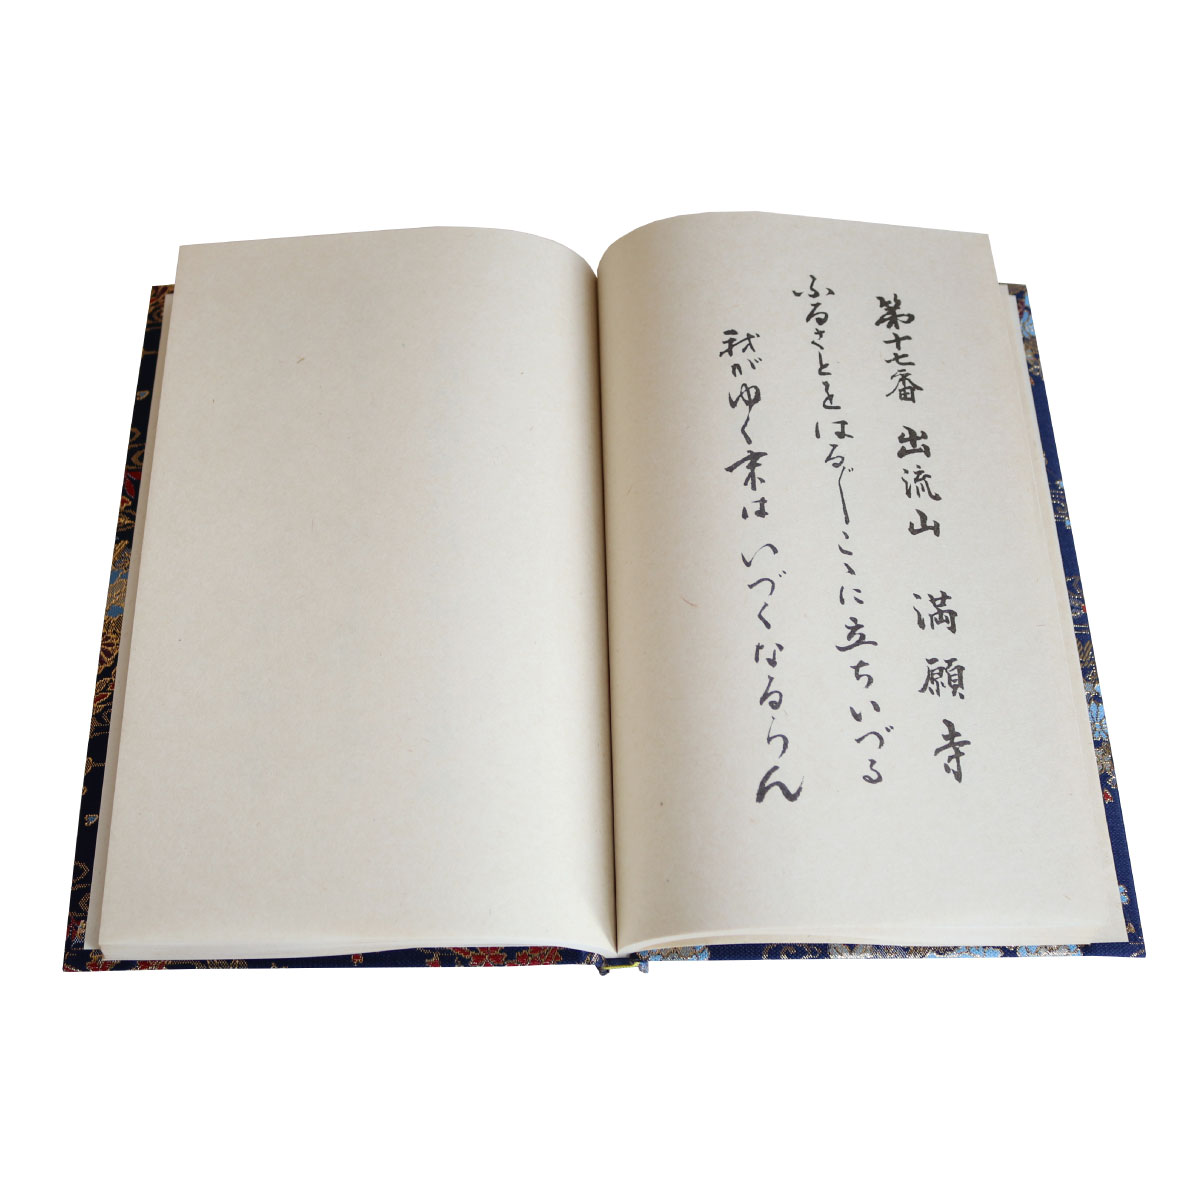 第十七番 出流山 満願寺
ふるさとをはる〴〵こゝに立ちいづる
我がゆく末はいづくなるらん